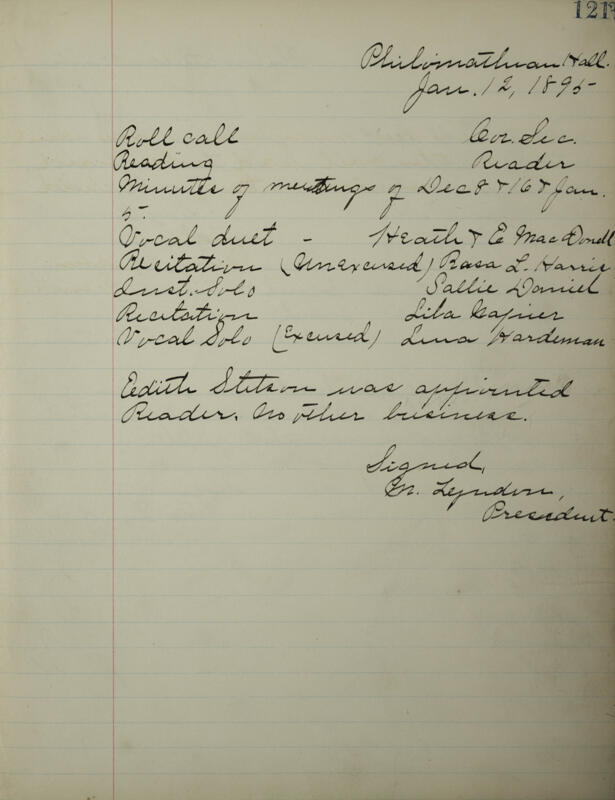 121
Philomathean Hall.
Jan. 12, 1895
Roll call Cor. Sec.
Reading Reader
Minutes of meetings of Dec 8 & 16 & Jan.
5.
Vocal duet - Heath & E MacDonell
Recitation (Unexcused) Rosa L. Harris
Inst. Solo Sallie Daniel
Recitation Lila Napier
Vocal Solo (Excused) Lena Hardeman
Edith Stetson was appointed
Reader. No other business.
Signed,
M. Lyndon,
President.